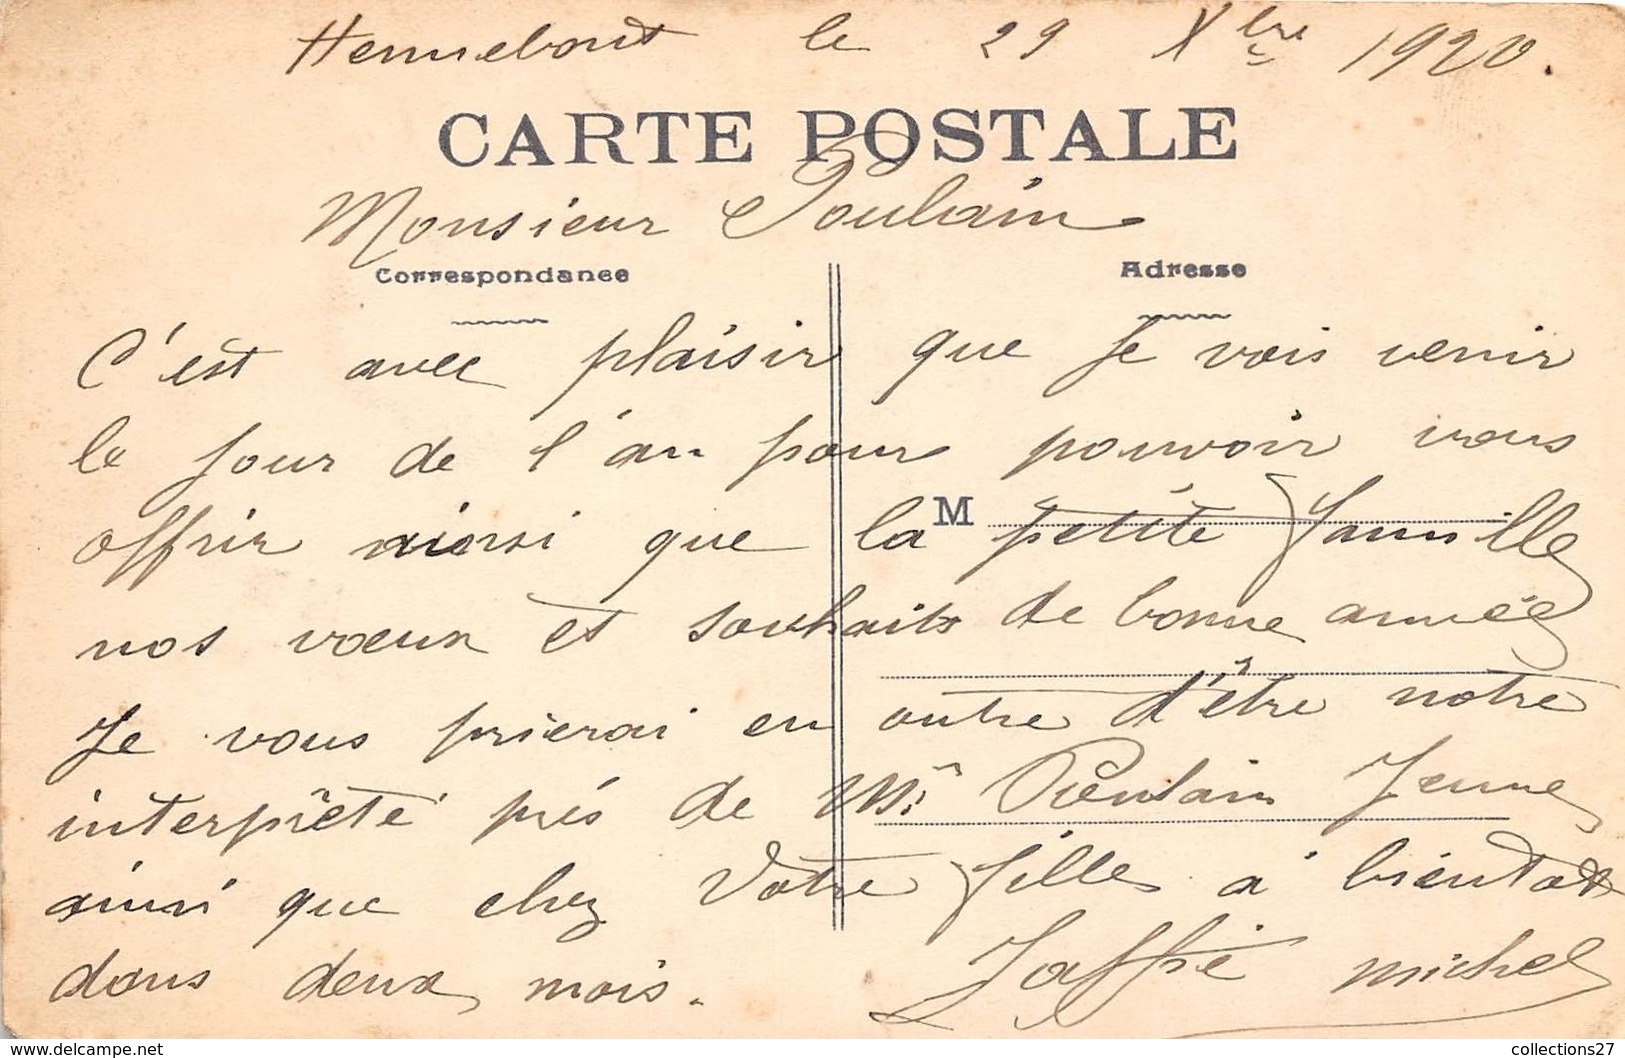 Hennebont le 29 Xbre 1920.
CARTE POSTALE
Monsieur Poulain
Correspondance Adresse
C'est avec plaisir que je vois venir
le jour de l'an pour pouvoir vous
offrir ainsi que la M petite famille
nos vœux et souhaits de bonne année
Je vous prierai en outre d'être notre
interprêté prés de Mr Poulain Jeune
ainsi que chez votre fille à bientot
dans deux mois. Jaffré michel
www.delcampe.net collections27